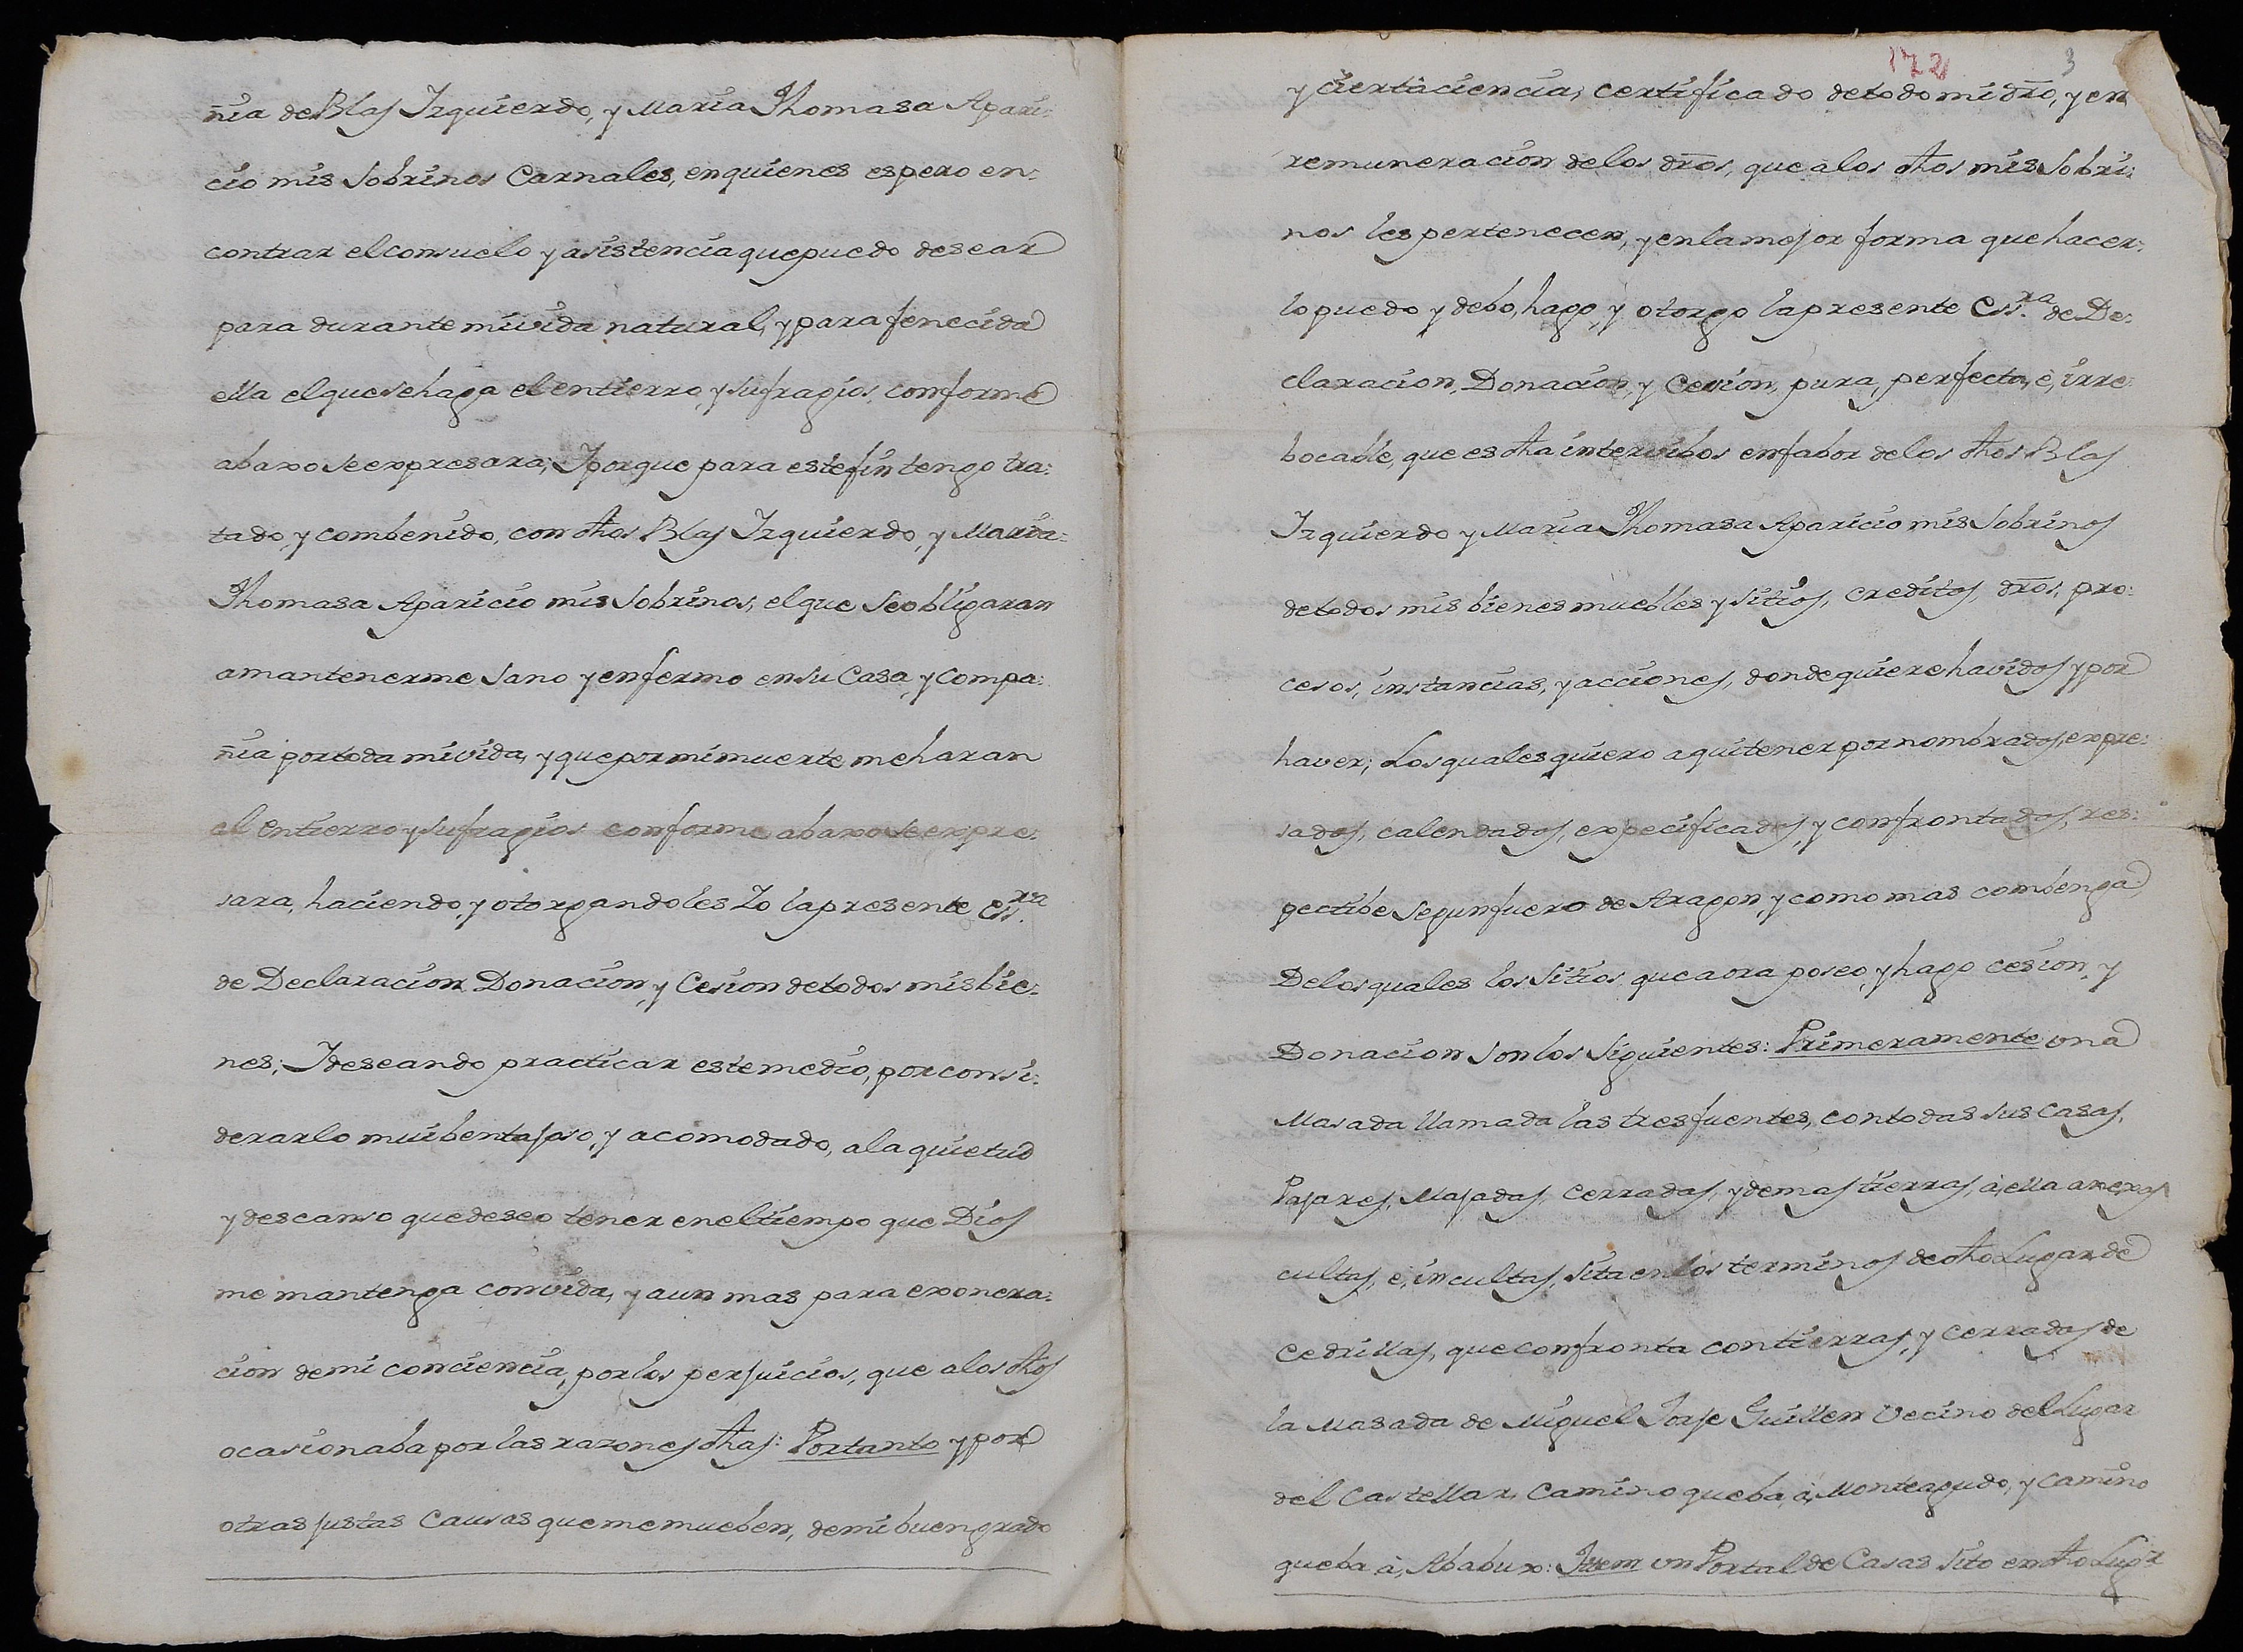 ñia de Blas Izquierdo, y Maria Thomasa Apari-
cio mis Sobrinos Carnales, en quienes espero en-
contrar el consuelo y asistencia que puedo desear
para durante mi vida natural, y para fenecida
ella el que se haga el entierro, y sufragios, conforme
abaxo se expresara; Y porque para este fin tengo tra-
tado, y combenido, con dhos Blas Izquierdo, y Maria-
Thomasa Aparicio mis Sobrinos, el que se obligaran
a mantenerme Sano y enfermo en su Casa, y Compa-
ñia por toda mi vida, y que por mi muerte me haran
el entierro y sufragios conforme abaxo se expre-
sara, haciendo, y otorgandoles Yo la presente Ess.ra
de Declaracion Donacion, y Cesion de todos mis bie-
nes; Y deseando practicar este medio, por consi-
derarlo mui bentajoso, y acomodado, a la quietud
y descanso que deseo tener en el tiempo que Dios
me mantenga con vida, y aun mas para exonera-
cion de mi conciencia, por los perjuicios, que a los dhos
ocasionaba por las razones dhas: Portanto y por
otras justas Causas que me mueben, de mi buen grado
172 3
y cierta ciencia, certificado de todo mi dro, y en
remuneracion de los dros, que à los dhos mis Sobri-
nos les pertenecen, y en la mejor forma que hacer-
lo puedo y debo, hago, y otorgo la presente Ess.ra de De-
claracion, Donacion, y Cesion, pura, perfecta, è, irre-
bocable, que es dha intervibos en fabor de los dhos Blas
Izquierdo y Maria Thomasa Aparicio mis Sobrinos
de todos mis bienes muebles y sitios, creditos, dros, pro-
cesos, instancias, y acciones, donde quiere havidos y por
haver; Los quales quiero aqui tener por nombrados, expre-
sados, calendados, expecificados, y confrontados, res-
pectibe segun fuero de Aragon, y como mas combenga
De los quales los Sitios que aora poseo, y hago cesion, y
Donacion son los Siguientes: Primeramente una
Masada llamada las tres fuentes, con todas sus casas,
Pajares, Majadas, Cerradas, y demas tierras, à, ella anexas
cultas, e, incultas, sita en los terminos de dho Lugar de
Cedrillas, que confronta con tierras, y cerradas de
la Masada de Miguel Jorje Guillen Vecino del Lugar
del Castellar, Camino que ba, à, Monteagudo, y Camino
que ba à, Ababux: Ittem un Portal de Casas sito en dho Lug.r